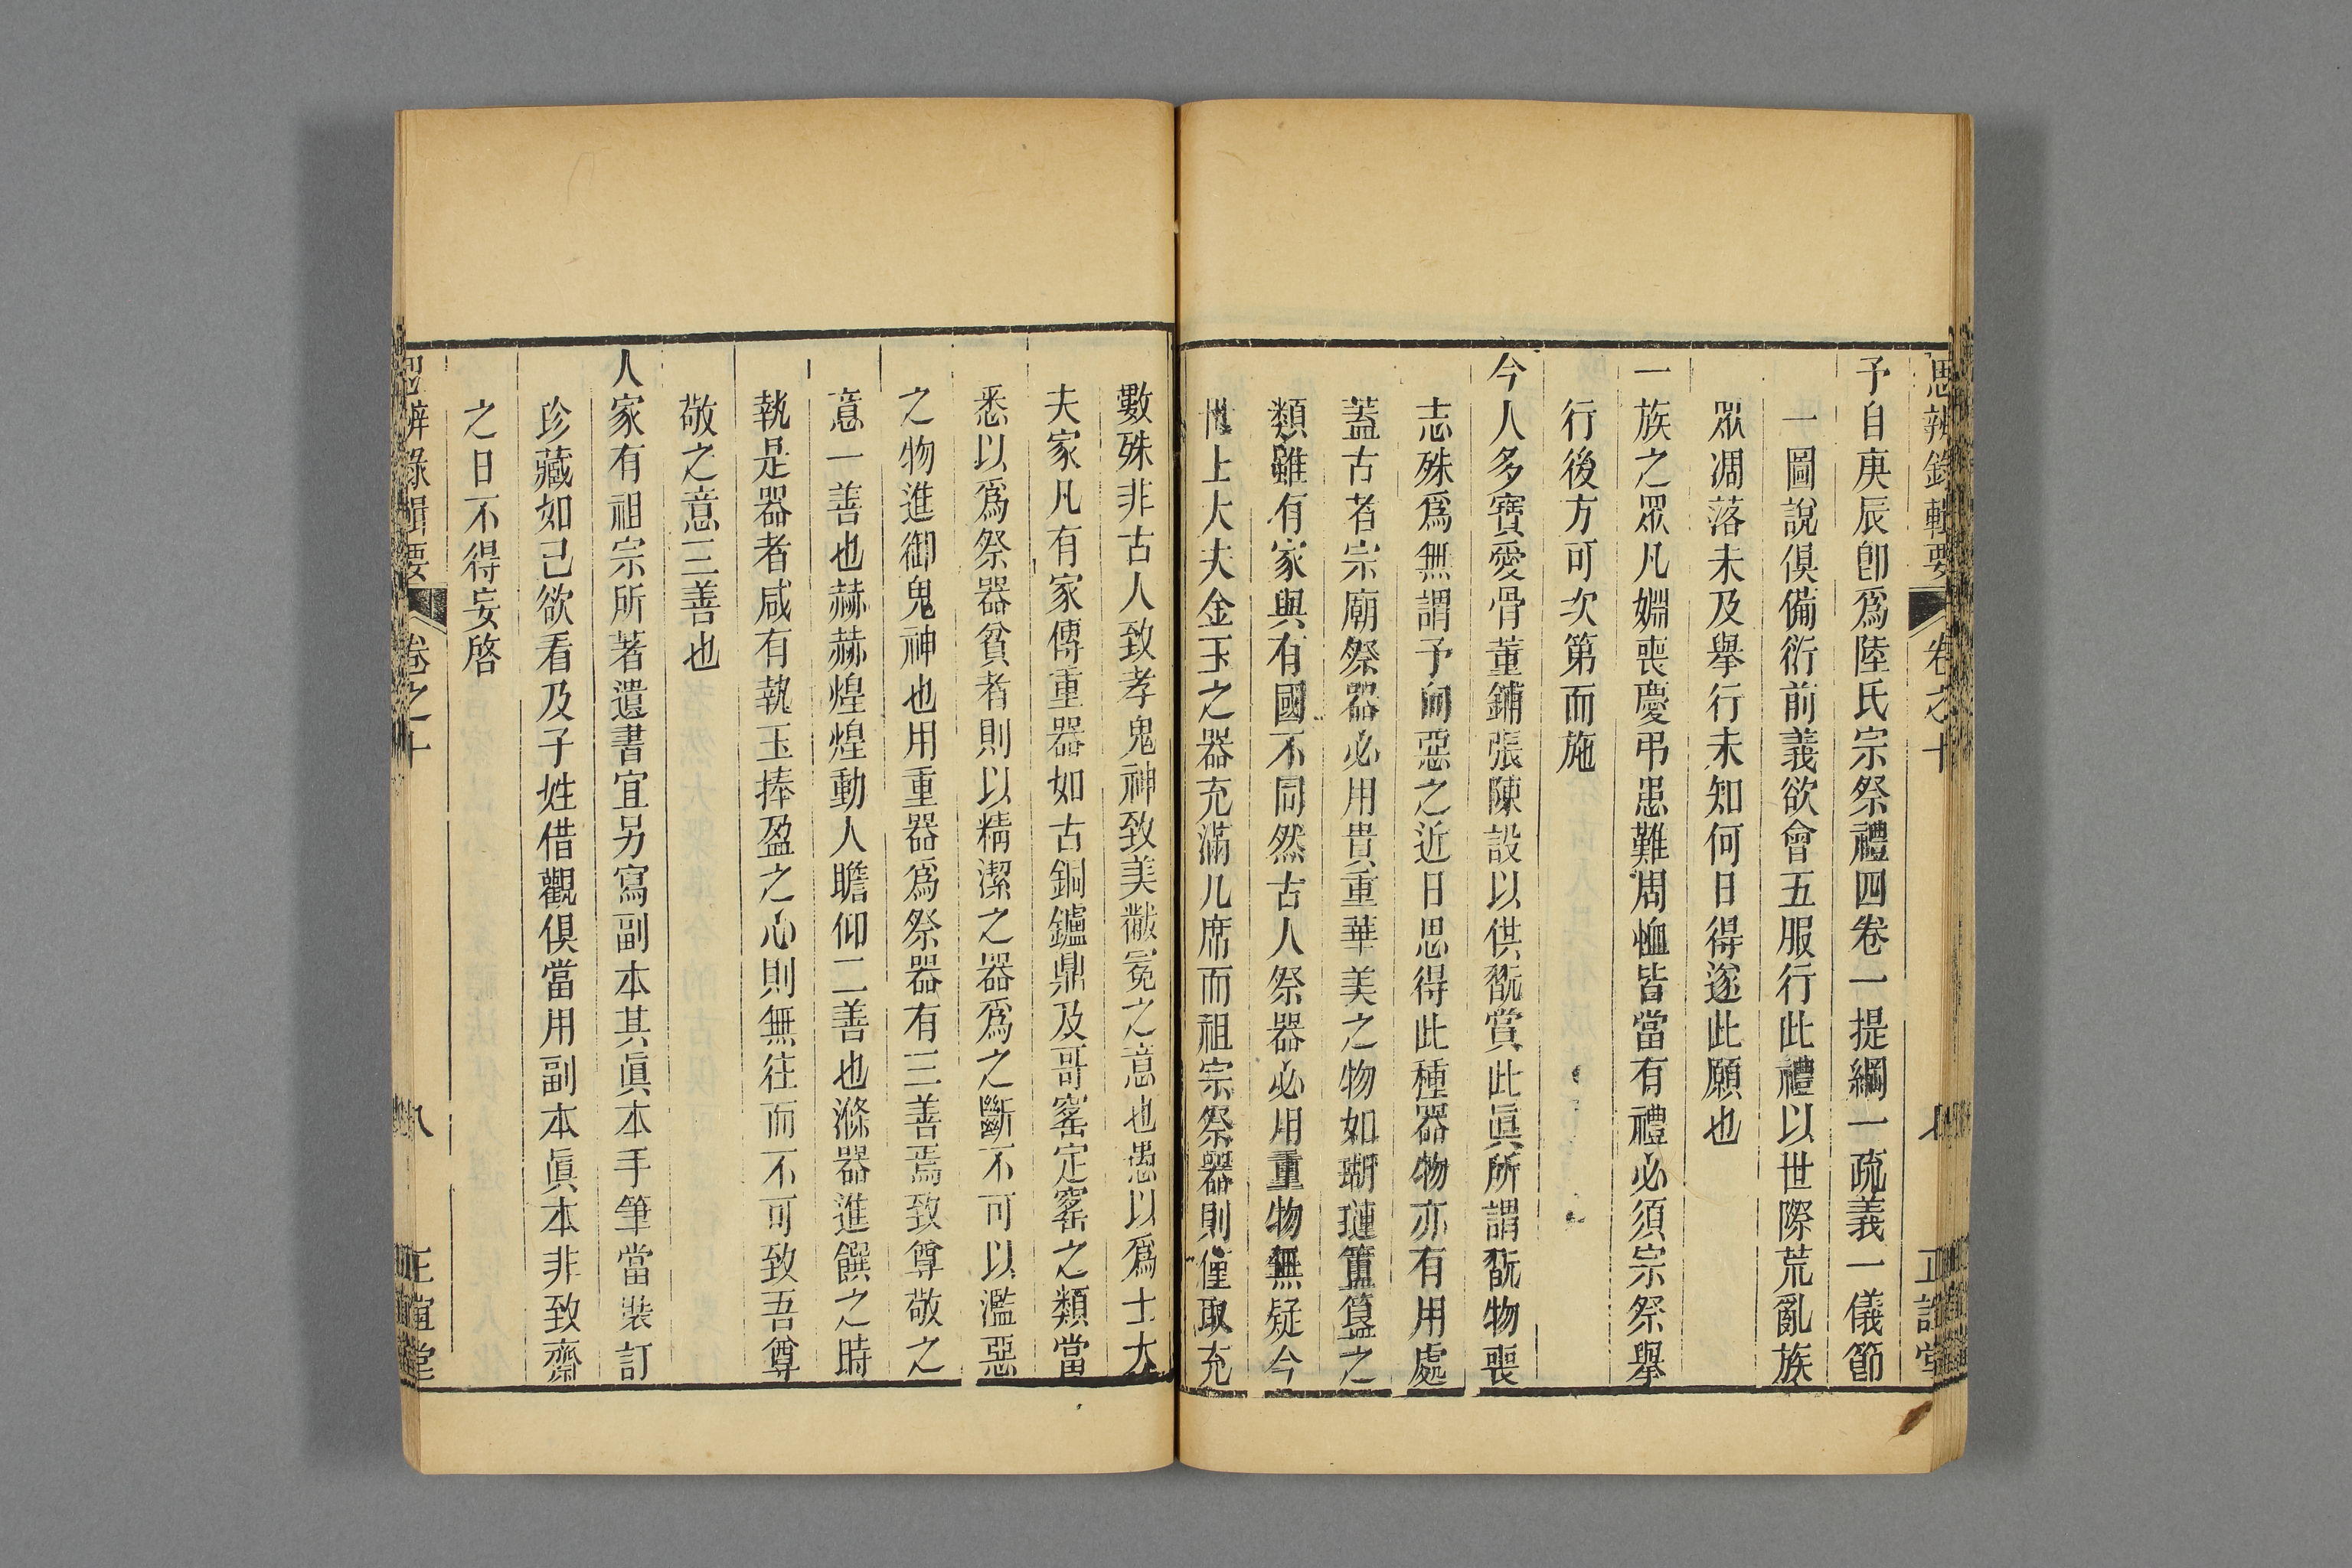 思辨錄輯要 卷之十 七 正誼堂
予自庚辰卽爲陸氏宗祭禮四卷一提綱一疏義一儀節
一圖說俱備衍前義欲會五服行此禮以世際荒亂族
眾凋落未及舉行未知何日得遂此願也
一族之眾凡婣喪慶弔患難周恤皆當有禮必須宗祭舉
行後方可次第而施
今人多寶愛骨董鋪張陳設以供翫賞此眞所謂翫物喪
志殊爲無謂予向惡之近日思得此種器物亦有用處
蓋古者宗廟祭器必用貴重華美之物如瑚璉簠簋之
類雖有家與有國不同然古人祭器必用重物無疑今
世上大夫金玉之器充滿几席而祖宗祭器則僅取充
數殊非古人致孝鬼神致美黻冕之意也愚以爲士大
夫家凡有家傳重器如古銅鑪鼎及哥窰定窰之類當
悉以爲祭器貧者則以精潔之器爲之斷不可以濫惡
之物進御鬼神也用重器爲祭器有三善焉致尊敬之
意一善也赫赫煌煌動人瞻仰二善也滌器進饌之時
執是器者咸有執玉捧盈之心則無往而不可致吾尊
敬之意三善也
人家有祖宗所著遺書宜另寫副本其眞本手筆當裝訂
珍藏如己欲看及子姓借觀俱當用副本眞本非致齋
之日不得妄啓
思辨錄輯要 卷之十 八 正誼堂